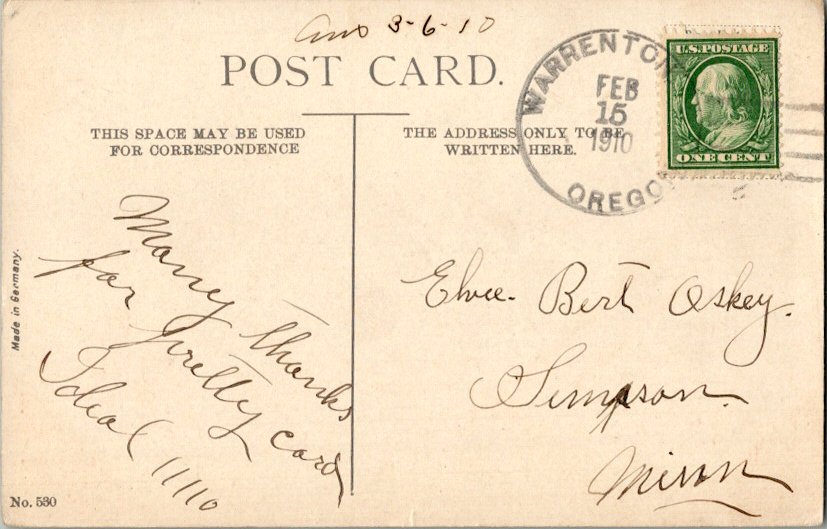 Ans 3-6-10
POST CARD.
THIS SPACE MAY BE USED
FOR CORRESPONDENCE
THE ADDRESS ONLY TO BE
WRITTEN HERE.
WARRENTON
FEB
15
1910
OREGON
U.S. POSTAGE
ONE CENT
Many thanks
for pretty card
Ideal 11110
Made in Germany.
Bert Oskey.
Simpson.
Minn
No. 530